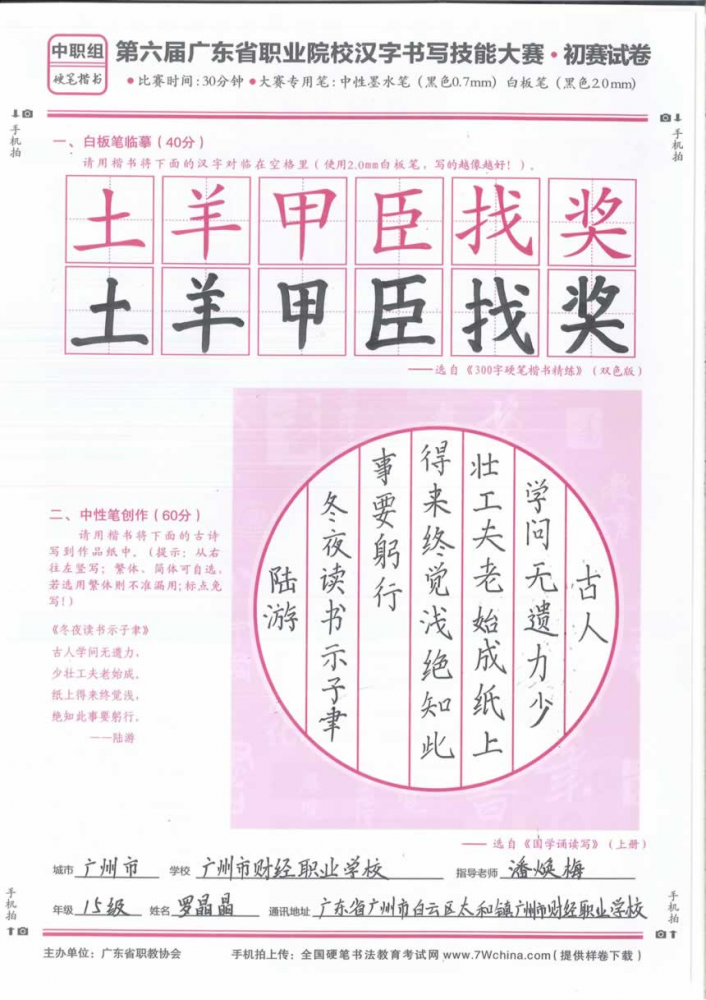 中职组
硬笔楷书
第六届广东省职业院校汉字书写技能大赛·初赛试卷
●比赛时间:30分钟●大赛专用笔:中性墨水笔(黑色0.7mm) 白板笔(黑色2.0mm)
手机拍
手机拍
一、白板笔临摹(40分)
请用楷书将下面的汉字对临在空格里(使用2.0mm白板笔,写的越像越好!)。
土羊甲臣找奖
土羊甲臣找奖
——选自《300字硬笔楷书精练》(双色版)
二、中性笔创作(60分)
请用楷书将下面的古诗
写到作品纸中。(提示:从右
往左竖写;繁体、简体可自选,
若选用繁体则不准漏用;标点免
写!)
《冬夜读书示子聿》
古人学问无遗力,
少壮工夫老始成。
纸上得来终觉浅,
绝知此事要躬行。
——陆游
古人
学问无遗力少
壮工夫老始成纸上
得来终觉浅绝知此
事要躬行
冬夜读书示子聿
陆游
——选自《国学诵读写》(上册)
城市 广州市 学校 广州市财经职业学校 指导老师 潘焕梅
年级 15级 姓名 罗晶晶 通讯地址 广东省广州市白云区太和镇广州市财经职业学校
手机拍
手机拍
主办单位:广东省职教协会 手机拍上传:全国硬笔书法教育考试网 www.7Wchina.com(提供样卷下载)